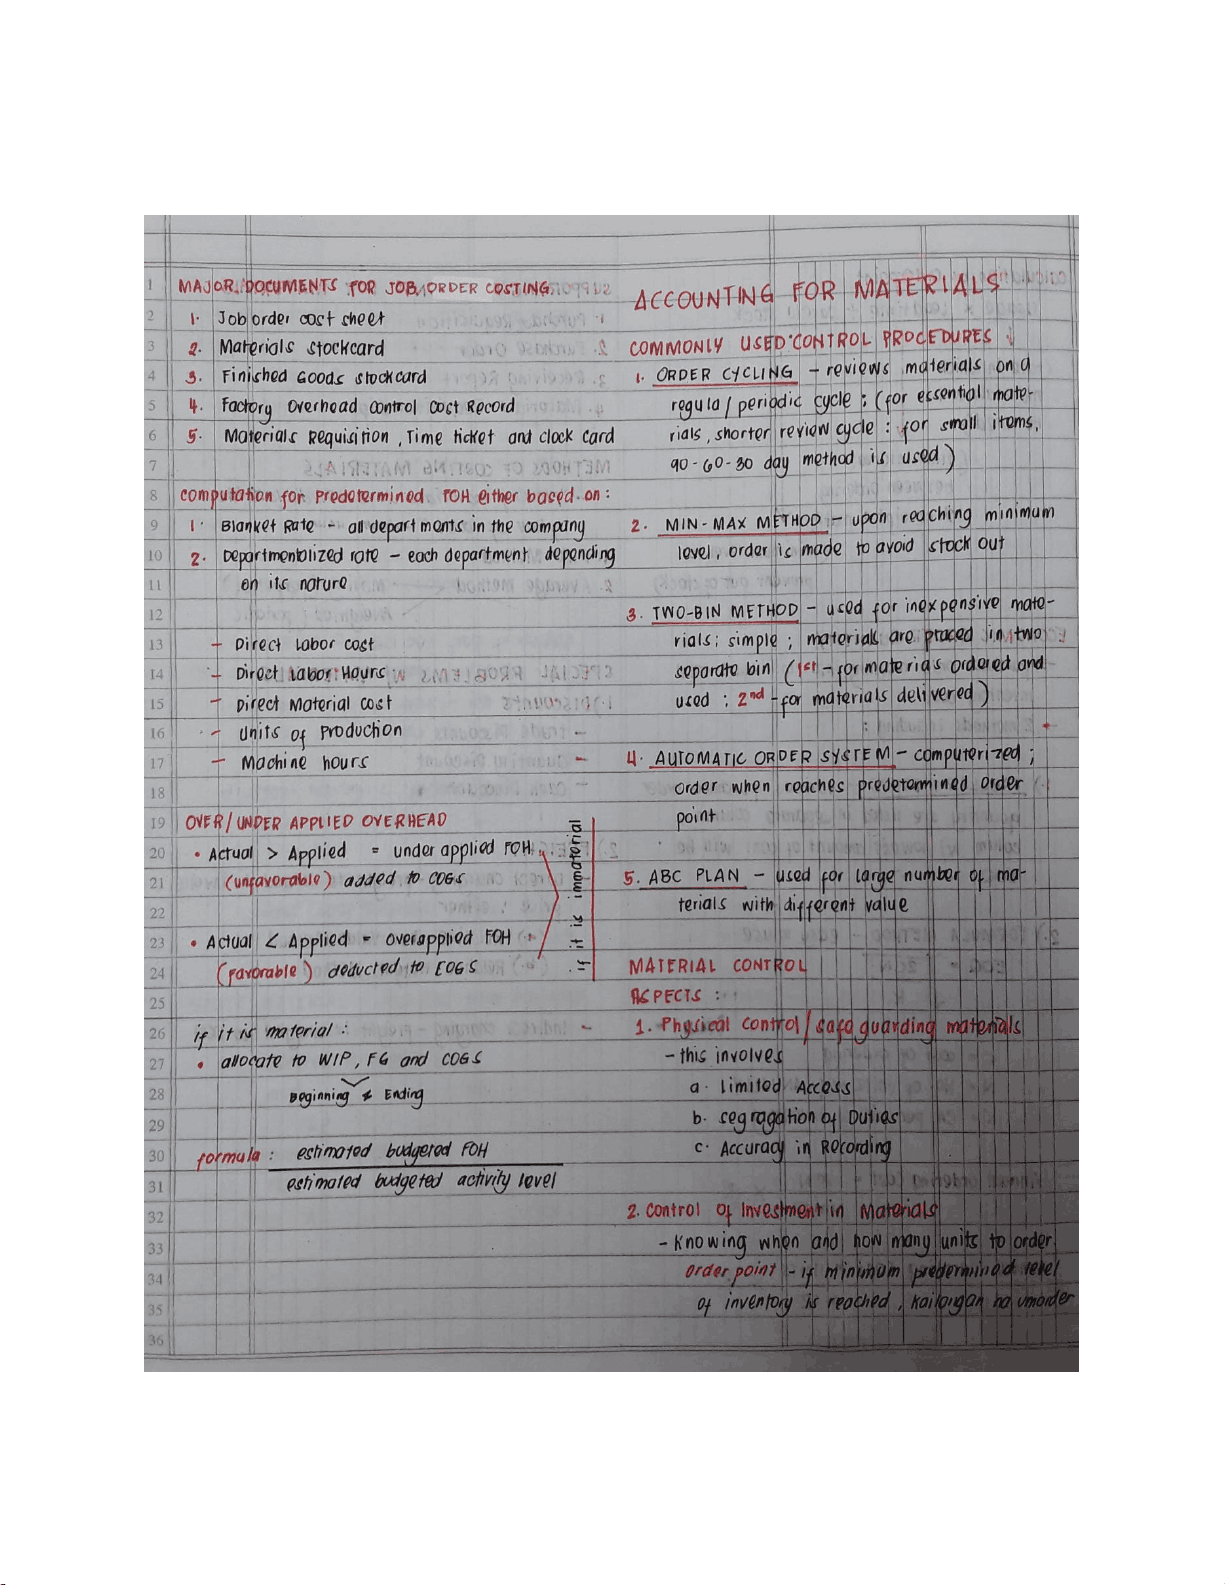 MAJOR DOCUMENTS FOR JOB ORDER COSTING
1. Job order cost sheet
2. Materials stockcard
3. Finished Goods stockcard
4. Factory Overhead Control Cost Record
5. Materials Requisition, Time ticket and clock card
computation for Predetermined FOH either based on:
1. Blanket Rate - all departments in the company
2. Departmentalized rate - each department depending
on its nature
- Direct Labor cost
- Direct Labor Hours
- Direct Material cost
- Units of Production
- Machine hours
OVER/UNDER APPLIED OVERHEAD
• Actual > Applied = under applied FOH
(unfavorable) added to COGS
• Actual < Applied = overapplied FOH
(favorable) deducted to COGS
if it is immaterial
if it is material:
• allocate to WIP, FG and COGS
Beginning & Ending
formula: estimated budgeted FOH
estimated budgeted activity level
ACCOUNTING FOR MATERIALS
COMMONLY USED CONTROL PROCEDURES
1. ORDER CYCLING - reviews materials on a
regula/periodic cycle; (for essential mate-
rials, shorter review cycle: for small items,
90-60-30 day method is used)
2. MIN-MAX METHOD - upon reaching minimum
level, order is made to avoid stock out
3. TWO-BIN METHOD - used for inexpensive mate-
rials; simple; materials are placed in two
separate bin (1st - for materials ordered and
used; 2nd - for materials delivered)
4. AUTOMATIC ORDER SYSTEM - computerized;
order when reaches predetermined order
point
5. ABC PLAN - used for large number of ma-
terials with different value
MATERIAL CONTROL
ASPECTS:
1. Physical control/safeguarding materials
- this involves
a. Limited Access
b. Segragation of Duties
c. Accuracy in Recording
2. Control of Investment in Materials
- Knowing when and how many units to order
order point - if minimum predermined level
of inventory is reached, kailangan na umorder
1
2
3
4
5
6
7
8
9
10
11
12
13
14
15
16
17
18
19
20
21
22
23
24
25
26
27
28
29
30
31
32
33
34
35
36